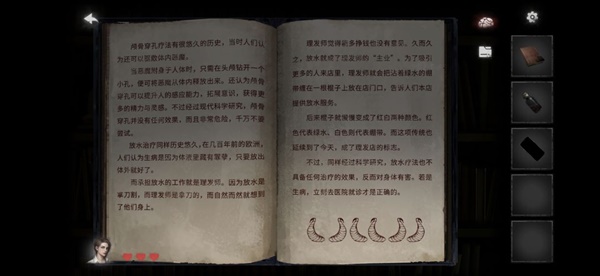 颅骨穿孔疗法有很悠久的历史，当时人们认
为还可以驱散体内恶魔。
当恶魔附身于人体时，只需在头颅钻开一个
小孔，便可将恶魔从体内释放出来。还认为颅骨
穿孔可以提升人的感应能力，拓展意识，获得更
多的精力与灵感。不过经过现代科学研究，颅骨
穿孔并没有任何效果，而且非常危险，千万不要
尝试。
放水疗法同样历史悠久，在几百年前的欧洲，
人们认为生病是因为体液里藏有罪孽，只要放出
体外就好了。
而承担放水的工作就是理发师。因为放水是
拿刀割，而理发师是拿刀的，而自然而然就想到
了他们身上。
理发师觉得能多挣钱也没有意见。久而久
之，放水就成了理发师的“主业”。为了吸引
更多的人来店里，理发师就会把沾着绿水的绷
带缠在一根棍子上放在店门口，告诉人们本店
提供放水服务。
后来棍子就慢慢变成了红白两种颜色。红
色代表绿水，白色则代表绷带。而这项传统也
延续到了今天，成了理发店的标志。
不过，同样经过科学研究，放水疗法也不
具备任何治疗的效果，反而对身体有害。若是
生病，立刻去医院就诊才是正确的。